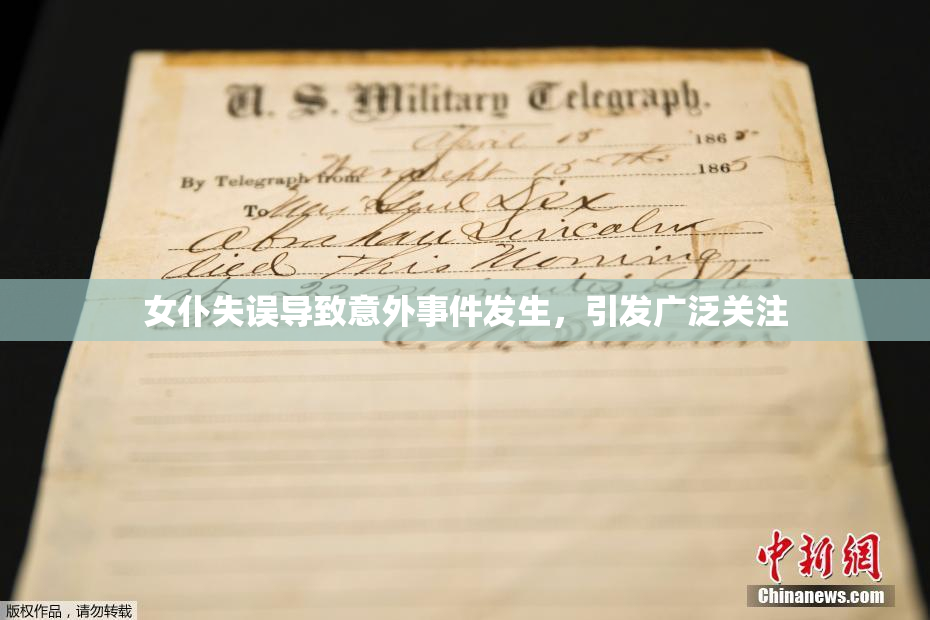 U. S. Military Telegraph.
April 15 1865
By Telegraph from War Dept 15th 1865
To Maj Genl Dix
Abraham Lincoln
died This Morning
at 22 minutes after
女仆失误导致意外事件发生，引发广泛关注
E. M. Stanton
中新网
Chinanews.com
版权作品，请勿转载